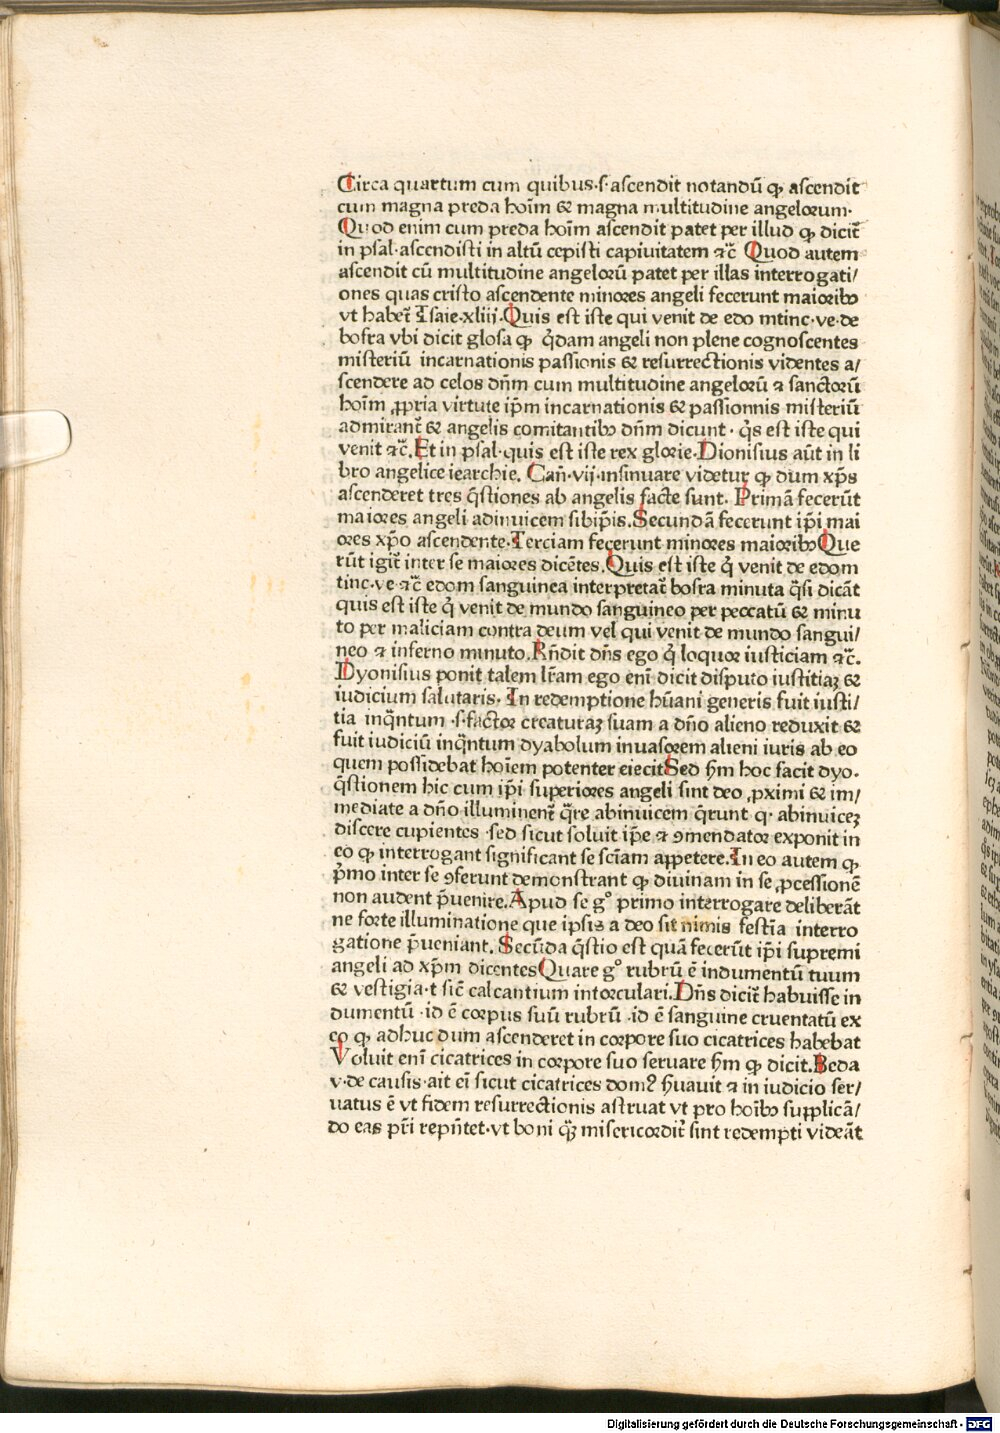 Circa quartum cum quibus·s·ascendit notandū ꝙ ascendit
cum magna preda hoīm & magna multitudine angelorum·
Quod enim cum preda hoīm ascendit patet per illud ꝙ dicit̄
in psal·ascendisti in altū cepisti capiuitatem ⁊c̄ Quod autem
ascendit cū multitudine angelorū patet per illas interrogati/
ones quas cristo ascendente minores angeli fecerunt maioribꝰ
vt habet̄ Isaie·xliij·Quis est iste qui venit de edo mtinc·ve·de
bosra vbi dicit glosa ꝙ q̄dam angeli non plene cognoscentes
misteriū incarnationis passionis & resurrectionis videntes a/
scendere ad celos dn̄m cum multitudine angelorū ⁊ sanctorū
hoīm ꝓpria virtute ip̄m incarnationis & passionnis misteriū
admirant̄ & angelis comitantibꝰ dn̄m dicunt· q̄s est iste qui
venit ⁊c̄.Et in psal·quis est iste rex glorie·Dionisius aūt in li
bro angelice iearchie. Can̄·vij·insinuare videtur ꝙ dum xp̄s
ascenderet tres q̄stiones ab angelis facte sunt. Primā fecerūt
maiores angeli adinuicem sibip̄is.Secundā fecerunt ip̄i mai
ores xp̄o ascendente·Terciam fecerunt minores maioribꝰQue
rūt igit̄ inter se maiores dicētes.Quis est iste q̄ venit de edom
tinc·ve·⁊c̄ edom sanguinea interpretat̄ bosra minuta q̄si dicāt
quis est iste q̄ venit de mundo sanguineo per peccatū & minu
to per maliciam contra deum vel qui venit de mundo sangui/
neo ⁊ inferno minuto.Rn̄dit dn̄s ego q̄ loquor iusticiam ⁊c̄.
Dyonisius ponit talem lr̄am ego enī dicit disputo iustitiaꝫ &
iudicium salutaris· In redemptione hūani generis fuit iusti/
tia inq̄ntum ·s·factor creaturaꝫ suam a dn̄o alieno reduxit &
fuit iudiciū inq̄ntum dyabolum inuasorem alieni iuris ab eo
quem possidebat hoīem potenter eiecitSed ẜm hoc facit dyo.
q̄stionem hic cum ip̄i superiores angeli sint deo ꝓximi & im/
mediate a dn̄o illuminent̄ q̄re abinuicem q̄runt q· abinuiceꝫ
discere cupientes ·sed sicut soluit ip̄e ⁊ ꝯmendator exponit in
eo ꝙ interrogant significant se sc̄iam appetere.In eo autem ꝙ
p̄mo inter se ꝯferunt demonstrant ꝙ diuinam in se ꝓcessionē
non audent p̄uenire.Apud se gͦ primo interrogare deliberāt
ne forte illuminatione que ipsis a deo sit nimis festīa interro
gatione p̄ueniant. Secūda q̄stio est quā fecerūt ip̄i supremi
angeli ad xp̄m dicentesQuare gͦ rubrū ē indumentū tuum
& vestigia·t sic̄ calcantium intorculari.Dn̄s dicit̄ habuisse in
dumentū ·id ē corpus suū rubrū ·id ē sanguine cruentatū ex
eo ꝙ adhuc dum ascenderet in corpore suo cicatrices habebat
Voluit enī cicatrices in corpore suo seruare ẜm ꝙ dicit.Beda
v·de causis·ait eī sicut cicatrices domꝰ ẜuauit ⁊ in iudicio ser/
uatus ē vt fidem resurrectionis astruat vt pro hoībꝰ supplicā/
do eas pr̄i repn̄tet·vt boni q̄ꝫ misericordit̄ sint redempti videāt
Digitalisierung gefördert durch die Deutsche Forschungsgemeinschaft - DFG